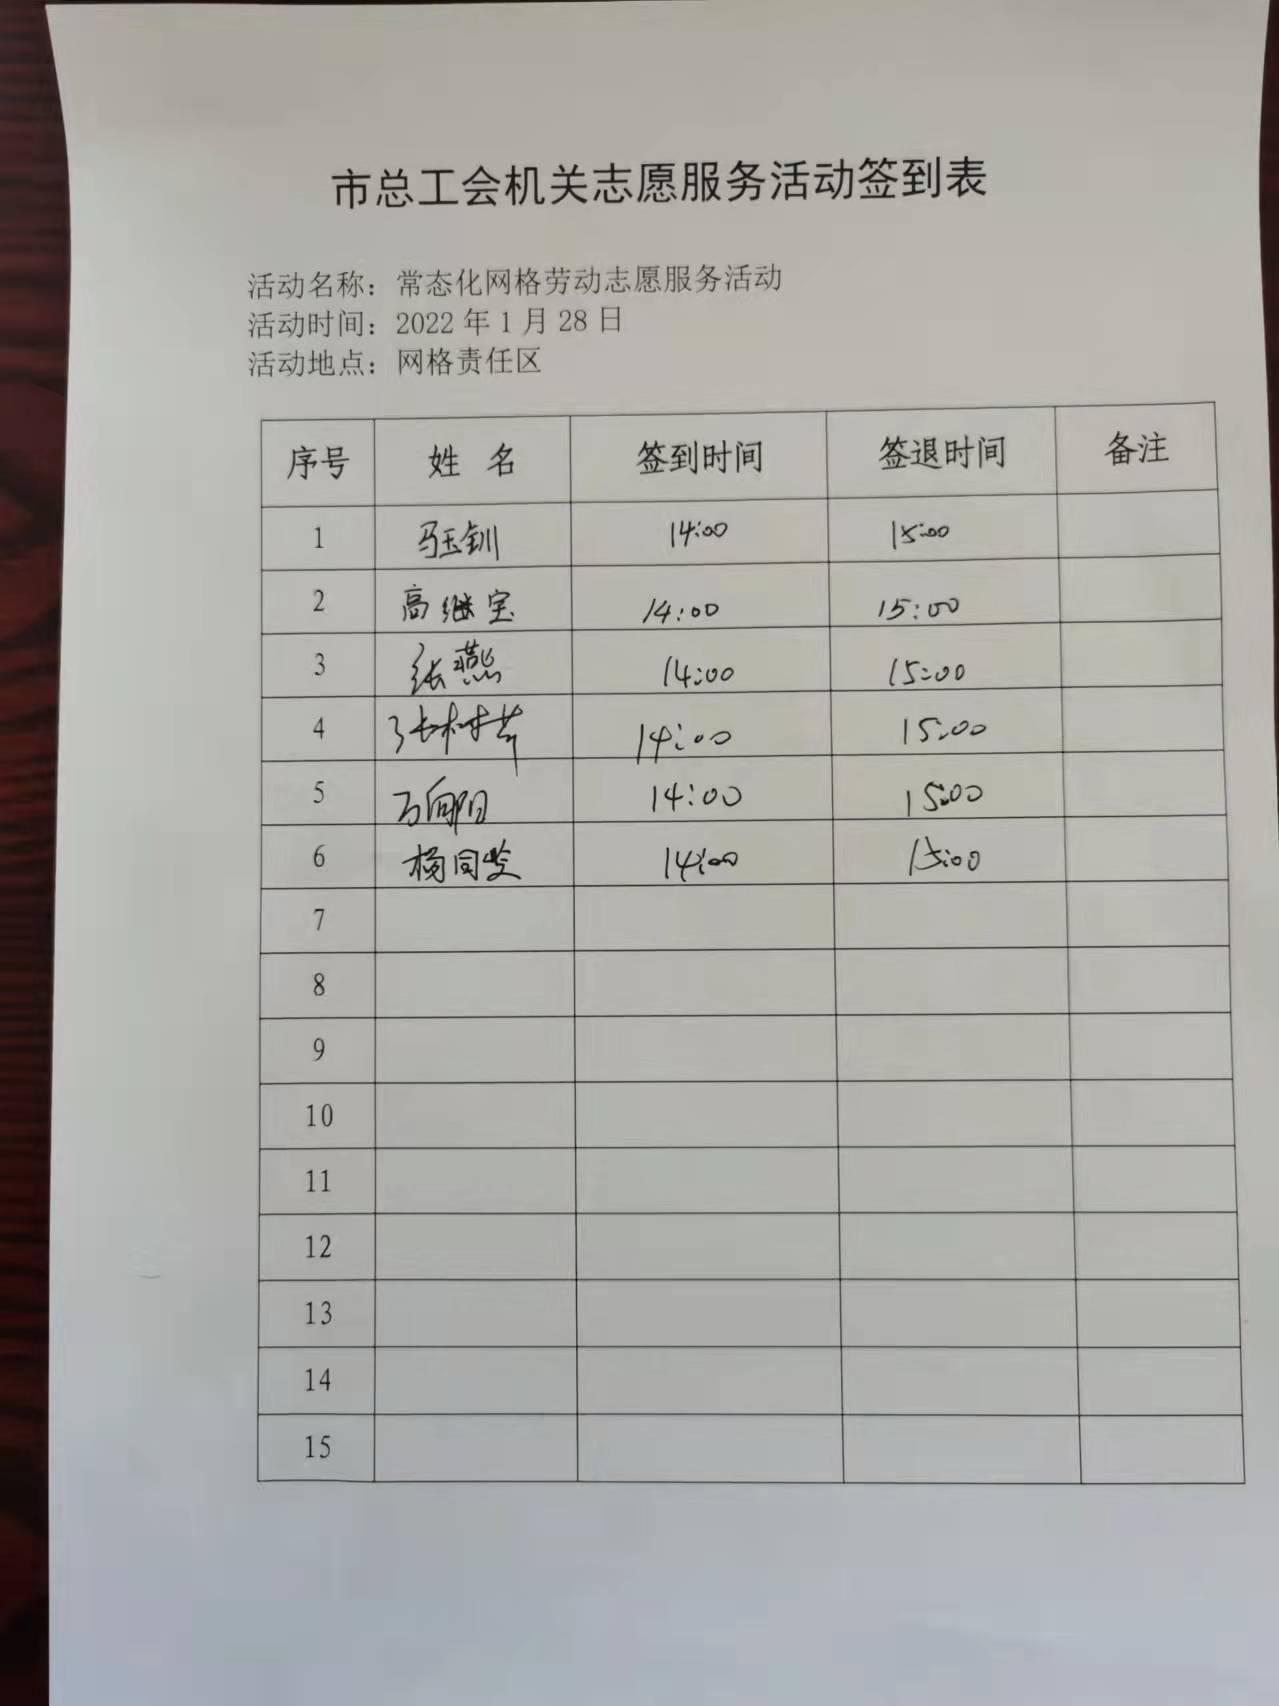 市总工会机关志愿服务活动签到表
活动名称：常态化网格劳动志愿服务活动
活动时间：2022 年 1 月 28 日
活动地点：网格责任区
序号 姓 名 签到时间 签退时间 备注
1 马玉钏 14:00 15:00
2 高继宝 14:00 15:00
3 张燕 14:00 15:00
4 张树 14:00 15:00
5 万向阳 14:00 15:00
6 杨同 14:00 15:00
7
8
9
10
11
12
13
14
15